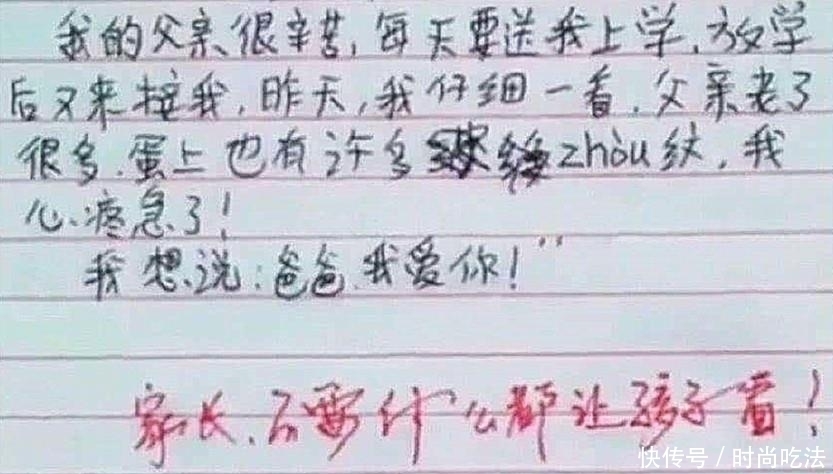 我的父亲很辛苦,每天要送我上学,放学
后又来接我,昨天,我仔细一看,父亲老了
很多,蛋上也有许多zhòu纹,我
心疼急了!
我想说:爸爸,我爱你!”
家长,不要什么都让孩子看!
快传号/时尚吃法